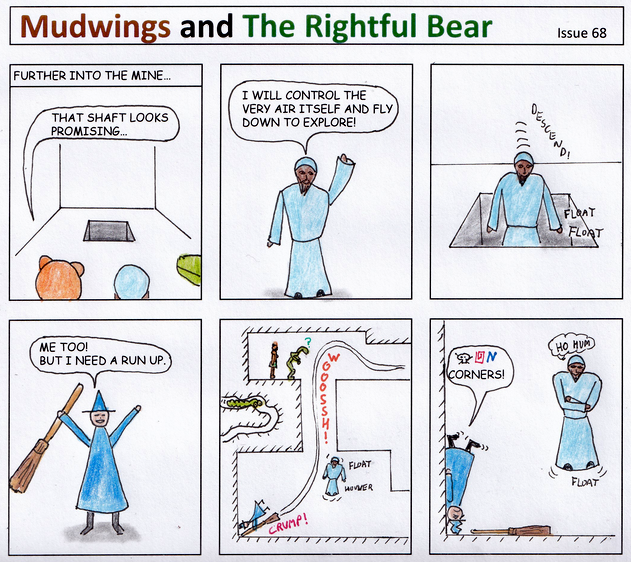 Mudwings and The Rightful Bear
Issue 68
FURTHER INTO THE MINE...
THAT SHAFT LOOKS
PROMISING...
I WILL CONTROL THE
VERY AIR ITSELF AND FLY
DOWN TO EXPLORE!
DESCEND!
FLOAT
FLOAT
ME TOO!
BUT I NEED A RUN UP.
?
WOOOSSH!
FLOAT
HOVVER
CRUMP!
CORNERS!
HO HUM
FLOAT